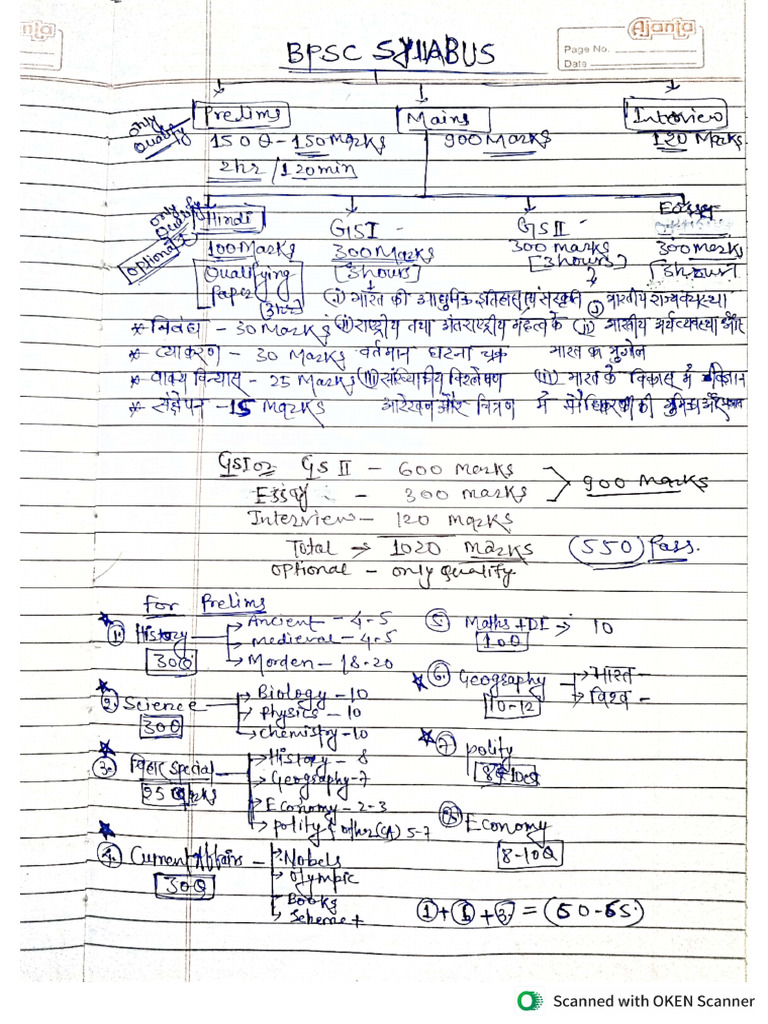 Ajanta
Page No.
Date
BPSC SYllABUS
only Qualify
Prelims
Mains
Interview
150 Q - 150 Marks
900 Marks
120 Marks
2hr / 120 min
only Qualify
optional
Hindi
GSI
GSII -
100 Marks
300 Marks
300 marks
300 marks
[3 hours]
[3 hours]
[3 hours]
Qualifying Paper
(3hr)
(i) भारत की आधुनिक इतिहास एवं संस्कृति
(i) भारतीय राज्यव्यवस्था
* निबंध - 30 Marks
(ii) राष्ट्रीय तथा अंतराष्ट्रीय महत्व के
(ii) भारतीय अर्थव्यवस्था और
* व्याकरण - 30 Marks
वर्तमान घटना चक्र
भारत का भुगोल
* वाक्य विन्यास - 25 Marks
(iii) सांख्यिकीय विश्लेषण
(iii) भारत के विकास में विज्ञान
* संक्षेपन - 15 Marks
आरेखन और चित्रण
में की भूमिका और
GSI or GS II - 600 Marks
Essay - 300 marks
900 Marks
Interview - 120 marks
Total → 1020 marks
(550) Pass.
optional - only qualify
For Prelims
1. History
30Q
Ancient - 4-5
medieval - 4-5
Morden - 18-20
5. Maths + DI → 10
10Q
2. Science
30Q
Biology - 10
physics - 10
chemistry - 10
6. Geography
10-12
भारत -
विश्व -
3. बिहार special
History - 8
Geography - 7
Economy - 2-3
polity & other (CA) 5-7
7. polity
4. Current Affairs
30Q
Nobels
olympic
Books
Scheme +
Economy
8-10Q
① + ⑥ + ③ = (50-55)
Scanned with OKEN Scanner